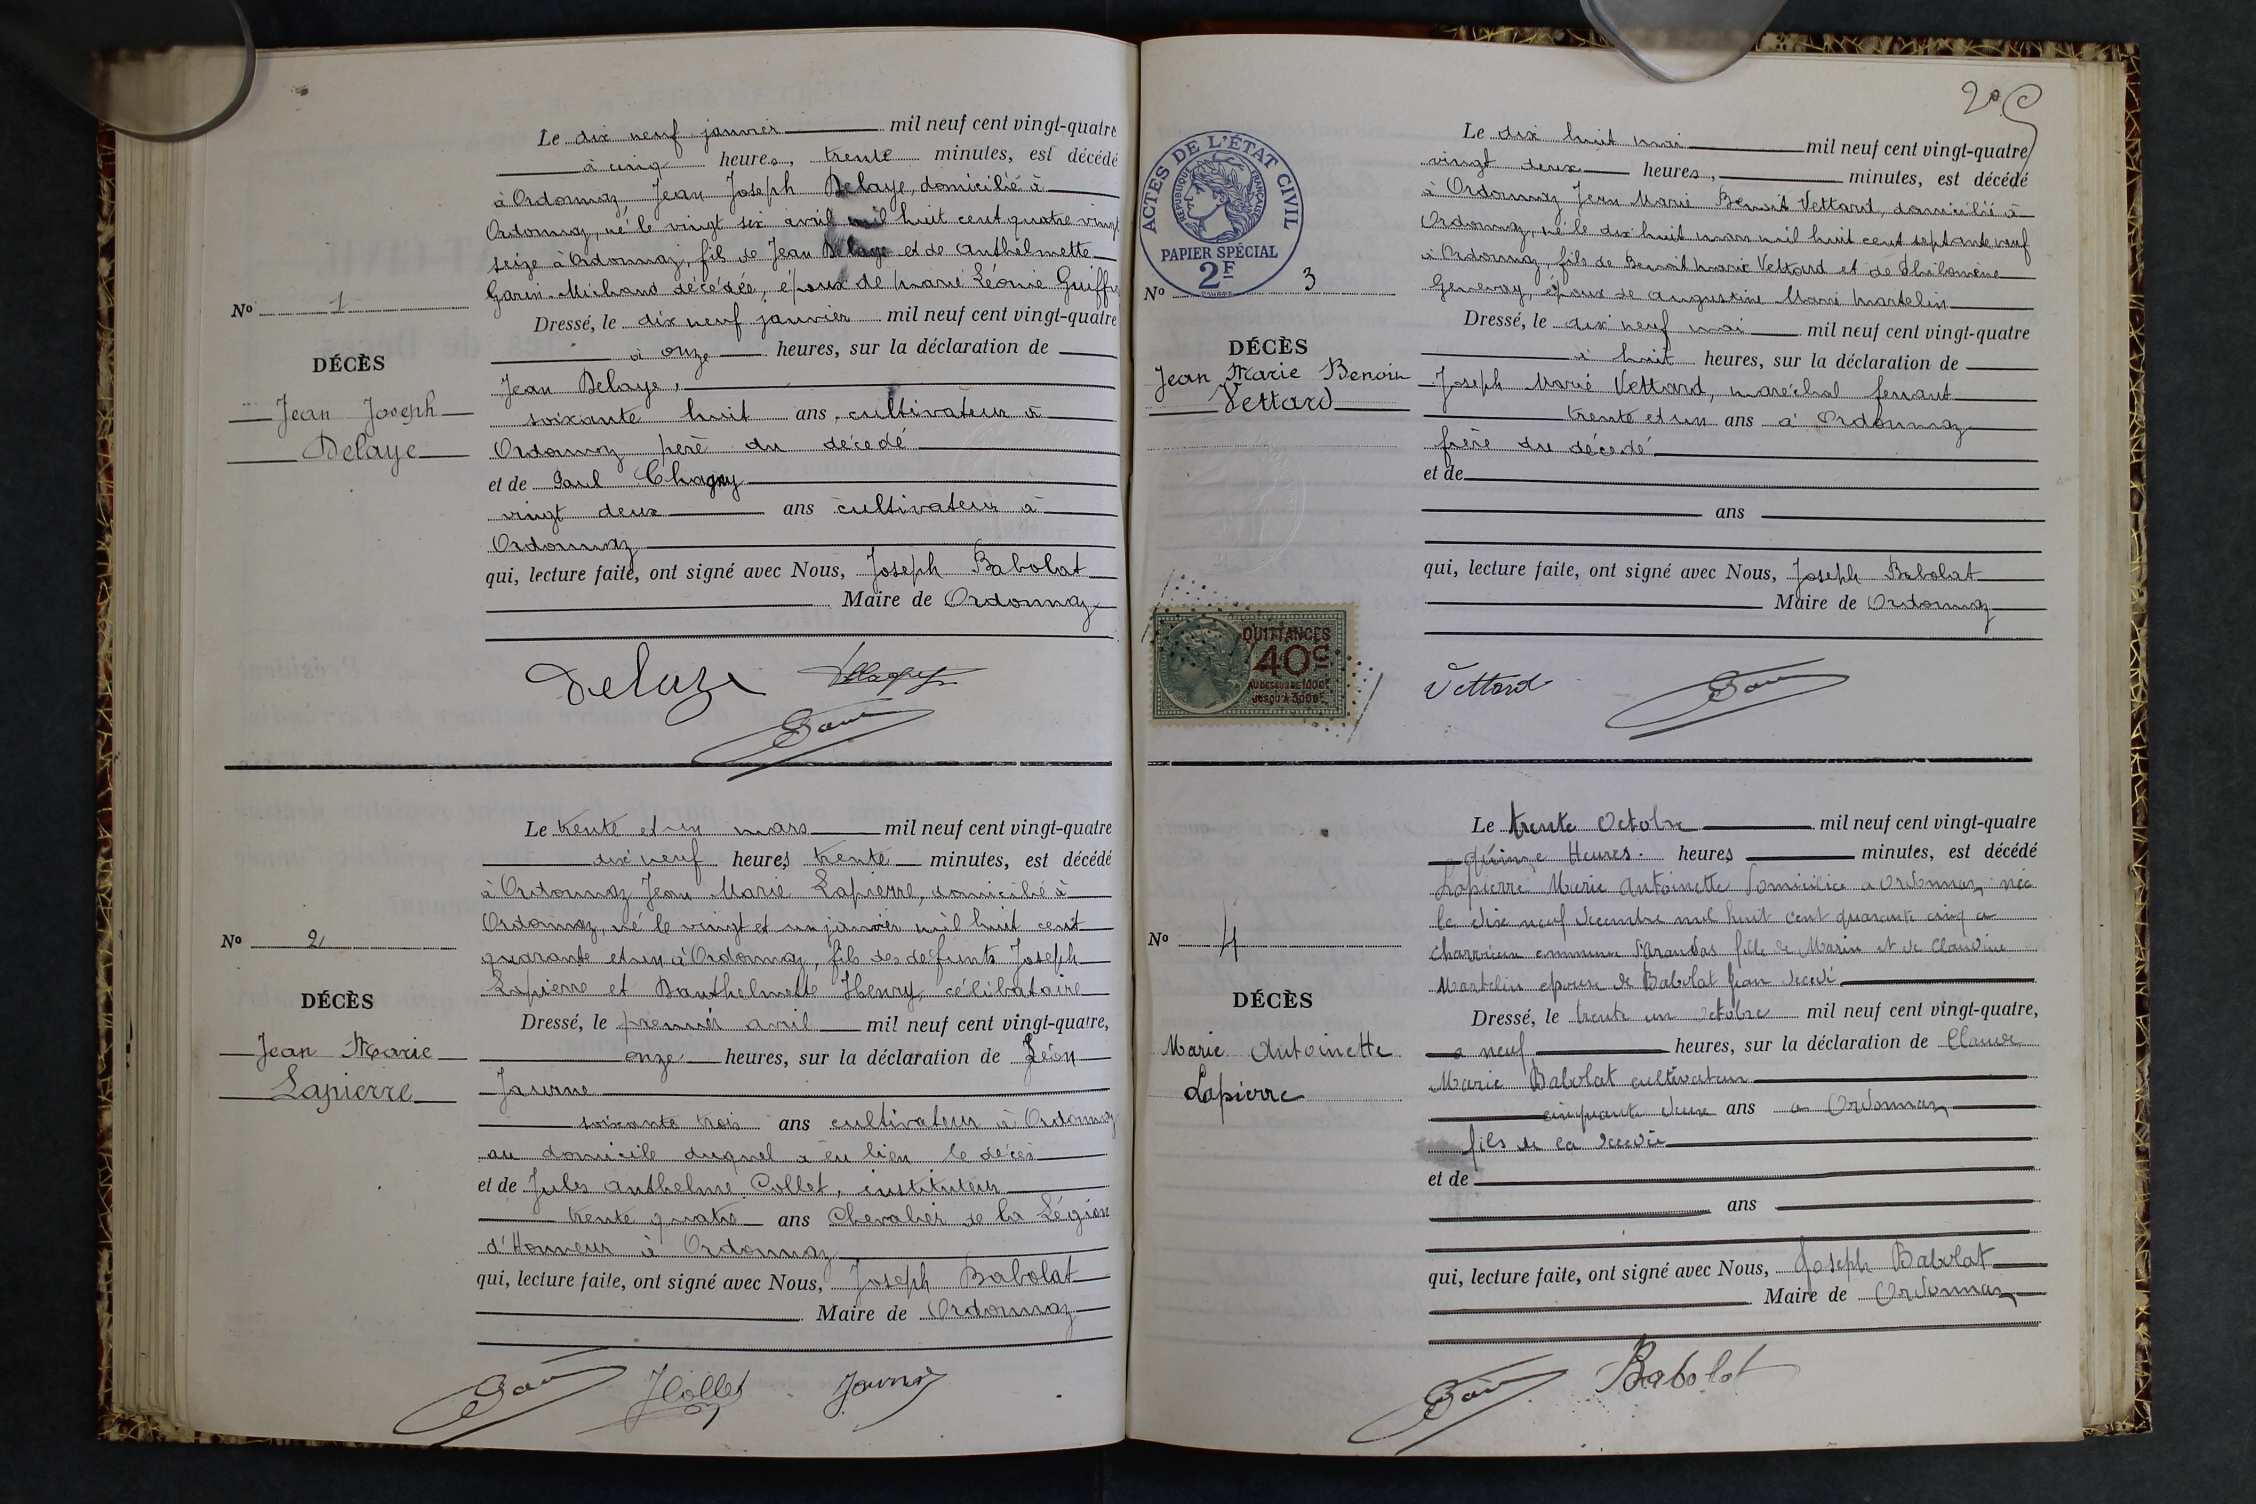 Le dix neuf janvier mil neuf cent vingt-quatre
à cinq heures, trente minutes, est décédé
à Ordonnaz, Jean Joseph Delaye, domicilié à
Ordonnaz, né le vingt six avril mil huit cent quatre vingt
seize à Ordonnaz, fils de Jean Delaye et de Anthelmette
Garin-Michaud décédée, époux de Marie Léonie Guiffre
No 1
Dressé, le dix neuf janvier mil neuf cent vingt-quatre
à onze heures, sur la déclaration de
DÉCÈS
Jean Joseph
Delaye
Jean Delaye,
soixante huit ans, cultivateur à
Ordonnaz père du décedé
et de Paul Chagny
vingt deux ans cultivateur à
Ordonnaz
qui, lecture faite, ont signé avec Nous, Joseph Babolat
Maire de Ordonnaz
Delaye
Le trente et un mars mil neuf cent vingt-quatre
dix neuf heures trente minutes, est décédé
à Ordonnaz Jean Marie Lapierre, domicilié à
Ordonnaz, né le vingt et un janvier mil huit cent
quarante et un à Ordonnaz, fils des defunts Joseph
Lapierre et Danthelmette Henry, célibataire
No 2
DÉCÈS
Jean Marie
Lapierre
Dressé, le premier avril mil neuf cent vingt-quatre,
onze heures, sur la déclaration de Léon
Juverne
soixante trois ans cultivateur à Ordonnaz
au domicile duquel a eu lieu le décès
et de Jules Anthelme Collet, instituteur
trente quatre ans Chevalier de la Légion
d'Honneur à Ordonnaz
qui, lecture faite, ont signé avec Nous, Joseph Babolat
Maire de Ordonnaz
JCollet
20
ACTES DE L'ÉTAT CIVIL
RÉPUBLIQUE FRANÇAISE
PAPIER SPÉCIAL
2F
Le dix huit mai mil neuf cent vingt-quatre
vingt deux heures, minutes, est décédé
à Ordonnaz Jean Marie Benoit Vettard, domicilié à
Ordonnaz, né le dix huit mars mil huit cent septante neuf
à Ordonnaz, fils de Benoit Marie Vettard et de Philomène
Genevay, époux de Augustine Marie Martelin
No 3
DÉCÈS
Jean Marie Benoin
Vettard
Dressé, le dix neuf mai mil neuf cent vingt-quatre
à huit heures, sur la déclaration de
Joseph Marie Vettard, maréchal ferrant
trente et un ans à Ordonnaz
frère du décedé
et de
ans
qui, lecture faite, ont signé avec Nous, Joseph Babolat
Maire de Ordonnaz
QUITTANCES
40c
AU DESSUS DE 1000F
JUSQU'A 3000F
Vettard
Le trente Octobre mil neuf cent vingt-quatre
quinze Heures. heures minutes, est décédé
Lapierre Marie Antoinette Domiciliée a Ordonnaz née
le dix neuf decembre mil huit cent quarante cinq a
Charvieux commune d'Arandas fille de Marin et de Claudine
Martelin epouse de Babolat Jean decedé
No 4
DÉCÈS
Marie Antoinette
Lapierre
Dressé, le trente un octobre mil neuf cent vingt-quatre,
a neuf heures, sur la déclaration de Claude
Marie Babolat cultivateur
cinquante deux ans a Ordonnaz
fils de la decedée
et de
ans
qui, lecture faite, ont signé avec Nous, Joseph Babolat
Maire de Ordonnaz
Babolat